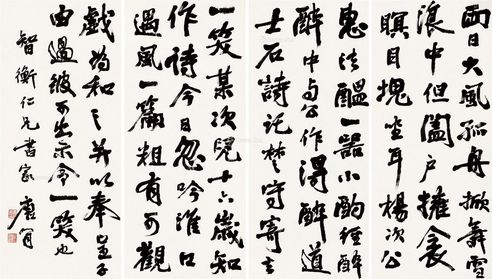 兩日大風孤舟掀舞雪
浪中但闔户擁衾
瞑目塊坐耳楊次公
惠法醞一器小酌徑醉
醉中與公作得醉道
士石詩託楚守寄去
一笑某次兒十六歲知
作詩今日忽吟淮口
遇風一篇粗有可觀
戲為和之并以奉呈子
由過彼可出示令一笑也
智衡仁兄書家 唐肯